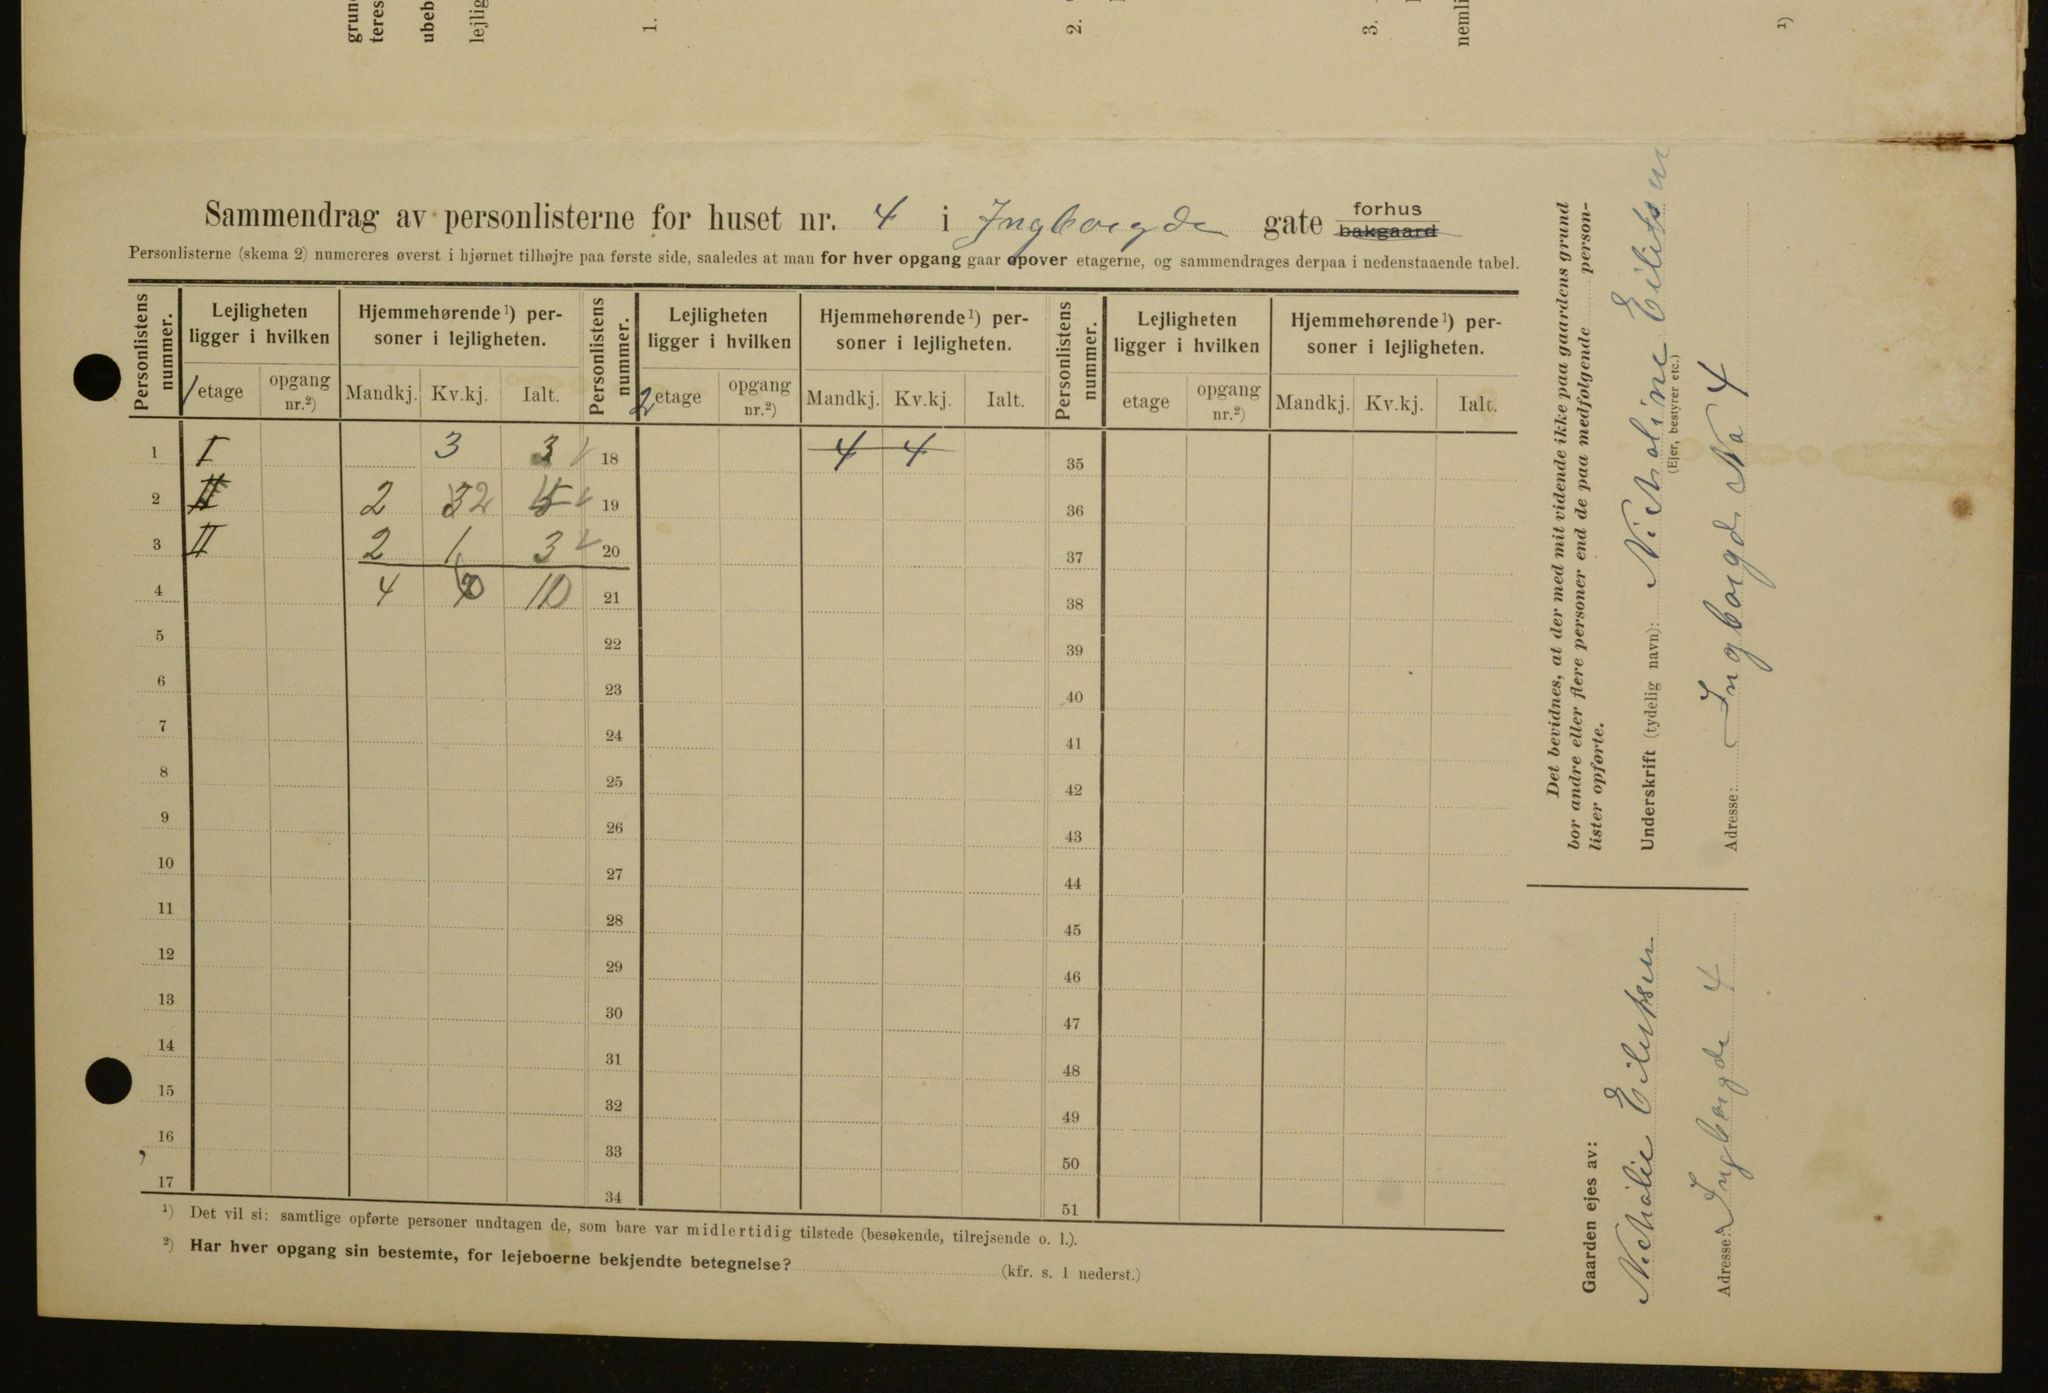 grun
teres
ubeb
lejlig
1.
2.
3.
nemli
1)
Sammendrag av personlisterne for huset nr. 4 i Ingborgde gate forhus bakgaard
Personlisterne (skema 2) numereres øverst i hjørnet tilhøjre paa første side, saaledes at man for hver opgang gaar opover etagerne, og sammendrages derpaa i nedenstaaende tabel.
Personlistens nummer. Lejligheten ligger i hvilken Hjemmehørende¹) personer i lejligheten. Personlistens nummer. Lejligheten ligger i hvilken Hjemmehørende¹) personer i lejligheten. Personlistens nummer. Lejligheten ligger i hvilken Hjemmehørende¹) personer i lejligheten.
1 etage opgang nr.²) Mandkj. Kv.kj. Ialt. 2 etage opgang nr.²) Mandkj. Kv.kj. Ialt. etage opgang nr.²) Mandkj. Kv.kj. Ialt.
1 I 3 3 18 4 4 35
2 II 2 32 19 36
3 II 2 1 3 20 37
4 4 10 21 38
5 22 39
6 23 40
7 24 41
8 25 42
9 26 43
10 27 44
11 28 45
12 29 46
13 30 47
14 31 48
15 32 49
16 33 50
17 34 51
¹) Det vil si: samtlige opførte personer undtagen de, som bare var midlertidig tilstede (besøkende, tilrejsende o. l.).
²) Har hver opgang sin bestemte, for lejeboerne bekjendte betegnelse? (kfr. s. 1 nederst.)
Det bevidnes, at der med mit vidende ikke paa gaardens grund
bor andre eller flere personer end de paa medfølgende person-
lister opførte.
Underskrift (tydelig navn): Nicholine Eilitsen
(Ejer, bestyrer etc.)
Adresse: Ingborgd. No 4
Gaarden ejes av:
Eilertsen
Adresse: Ingborgde 4